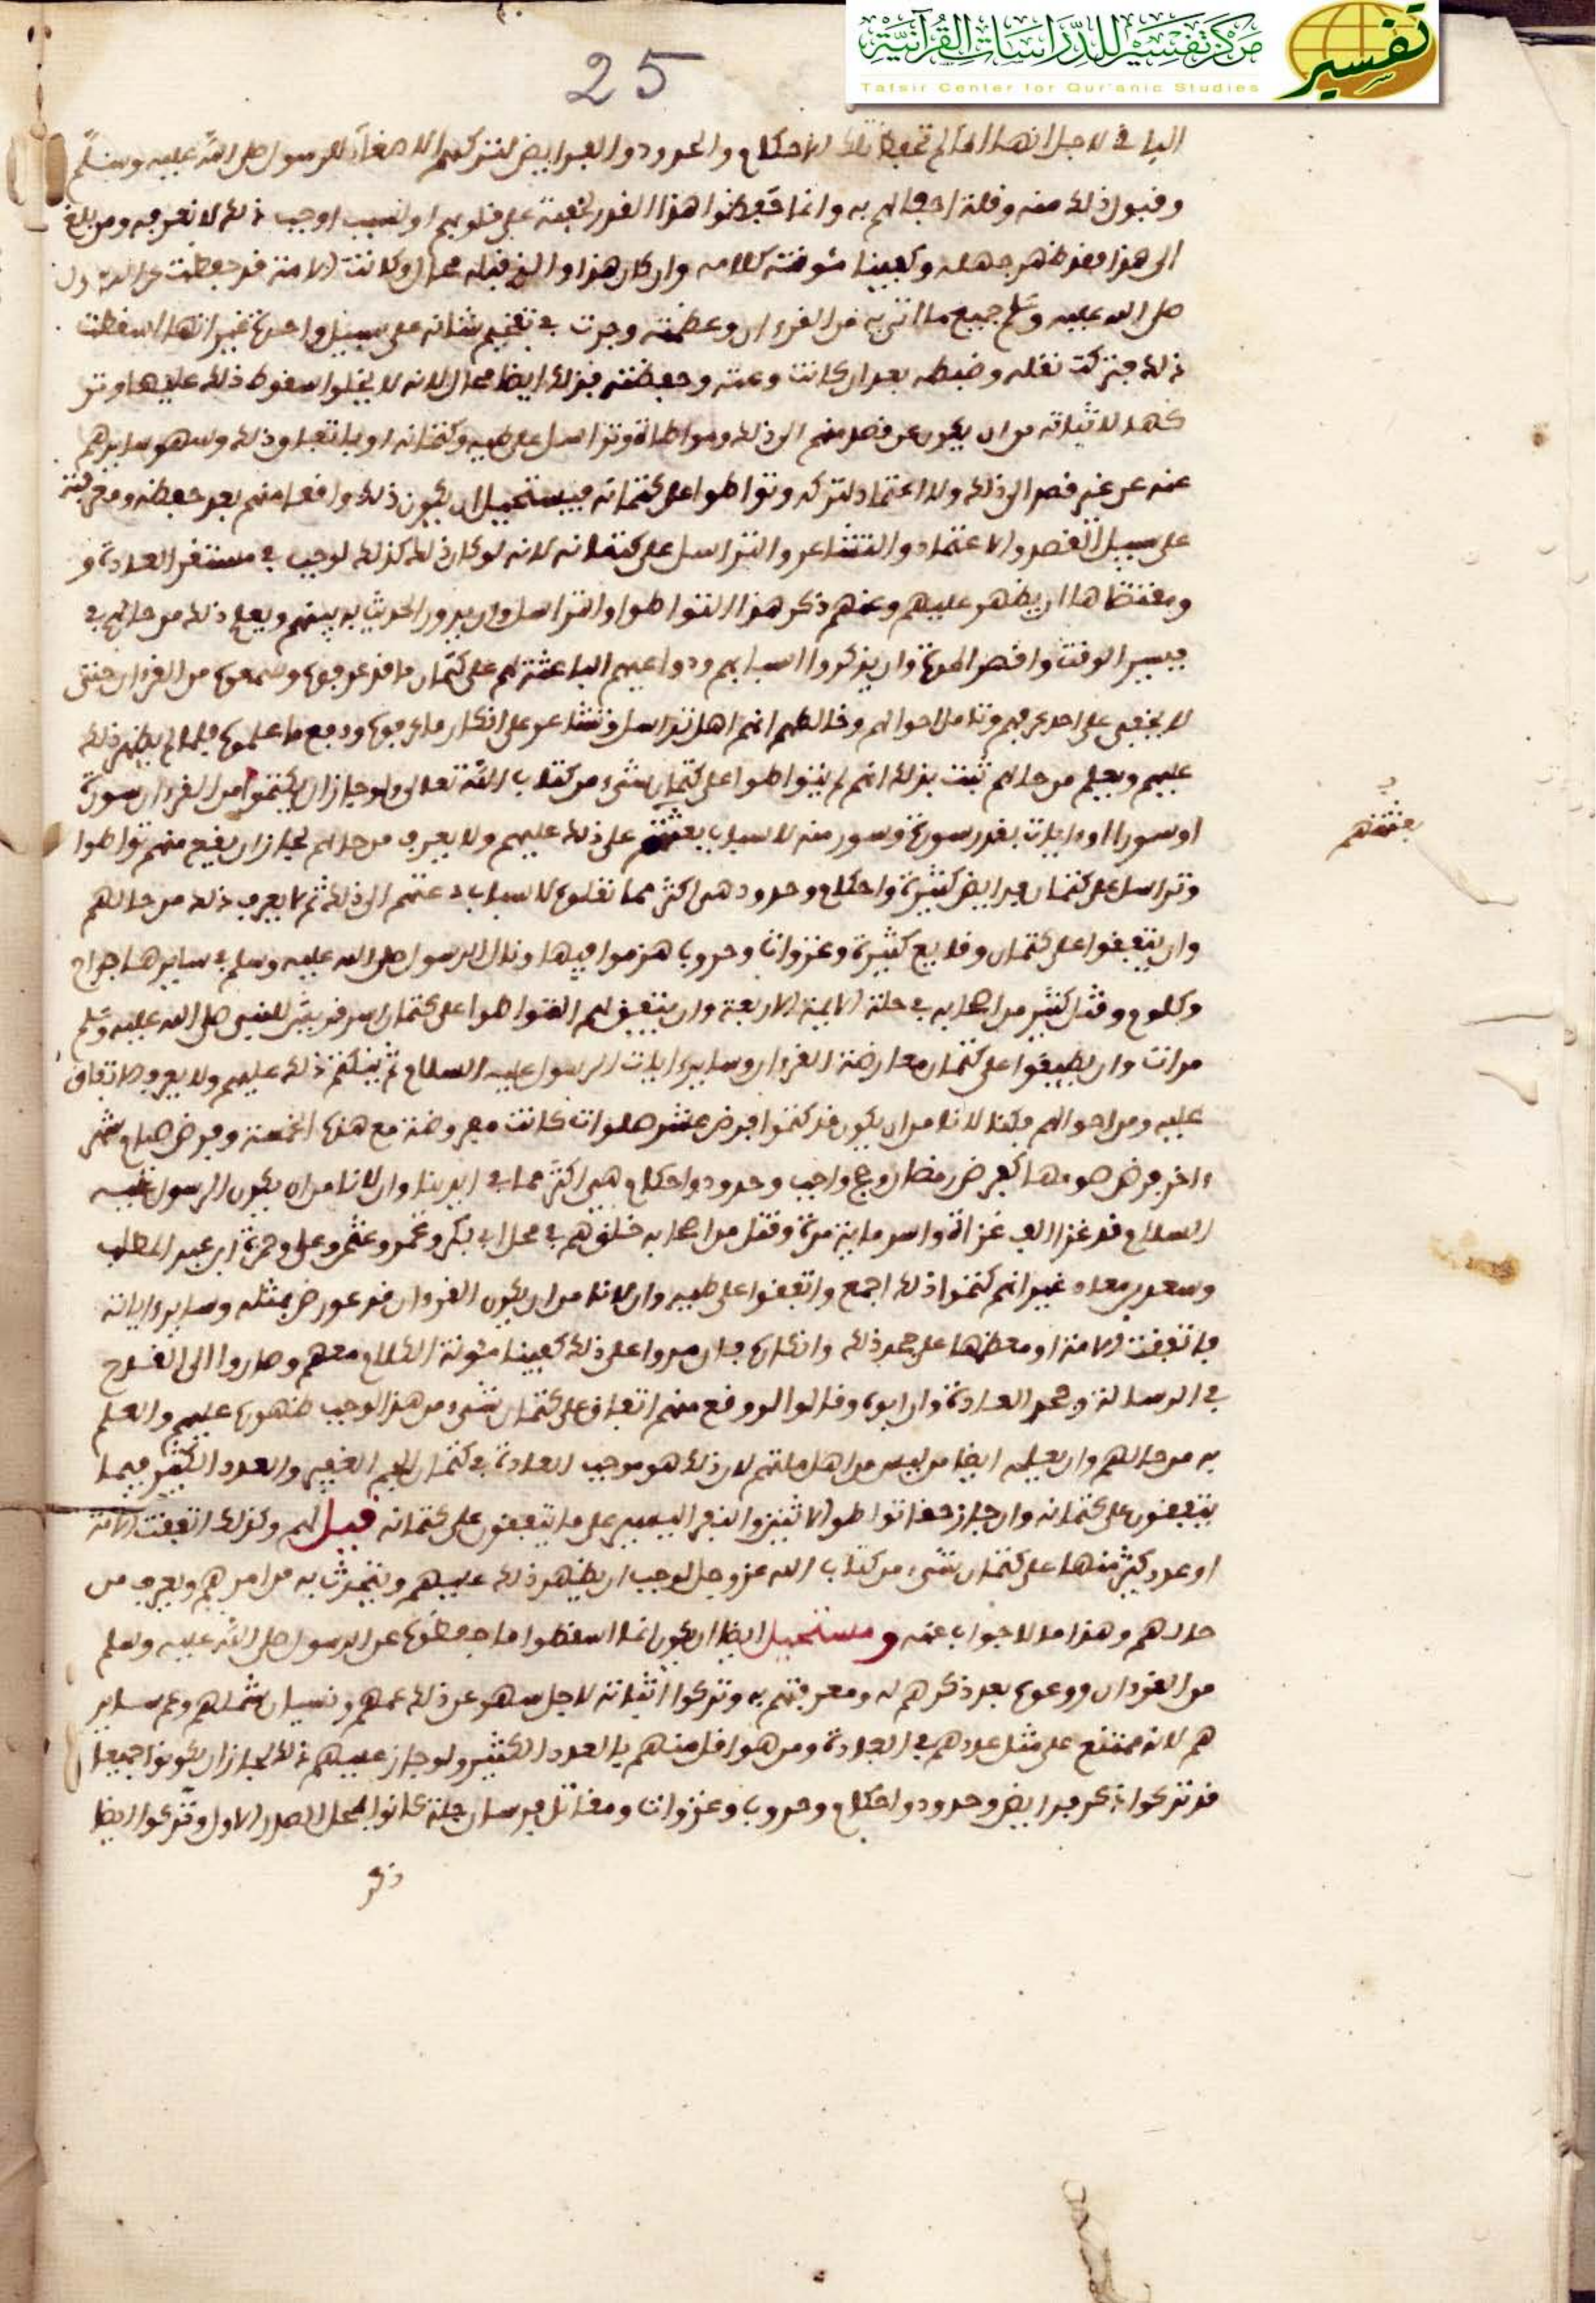 مركز تفسير للدراسات القرآنية
Tafsir Center for Qur'anic Studies
تفسير
25
الباقي لاجل انها لم تحفظ تلك الاحكام والحدود والفرايض لتركهم الاصغاء للرسول صلى الله عليه وسلم
وقبول ذلك منه وقلة احفالهم به وانما حفظوا هذا القدر لخفته على قلوبهم او لسبب اوجب ذلك لا نعرفه ومن بلغ
الى هذا فقد ظهر جهله وكفينا مئونة كلامه وان كان هذا والذي قبله محالا وكانت الامة قد حفظت عن الرسول
صلى الله عليه وسلم جميع ما اتى به من القرءان وعظمته وجرت في تفخيم شانه على سبيل واحدة غير انها اسقطت
ذلك فتركت نقله وضبطه بعد ان كانت وعته وحفظته فذلك ايضا محال لانه لا يخلوا سقوط ذلك عليها وتر
كها لاثباته من ان يكون عن قصد منهم الى ذلك ومواطاة وتراسل على طيه وكتمانه او باتفاق ذلك وسهو سايرهم
عنه عن غير قصد الى ذلك ولا اعتماد لتركه وتواطوا على كتمانه فيستحيل ان يكون ذلك واقعا منهم بعد حفظه ومعرفته
على سبيل القصد والاعتماد والتشاعر والتراسل على كتمانه لانه لو كان ذلك كذلك لوجب في مستقر العادة و
ومقتضاها ان يظهر عليهم وعنهم ذكر هذا التواطوا والتراسل وان يدور الحديث به بينهم ويعلم ذلك من حالهم في
يسير الوقت واقصر المدة وان يذكروا اسبابهم ودواعيهم الباعثة لهم على كتمان ما قد عرفوه وسمعوه من القرءان حتى
لا يخفى على احد عرفهم وتامل احوالهم وخالطهم انهم اهل تراسل وتشاعر على انكار ما عرفوه ودفع ما علموه فلما لم يظهر ذلك
عليهم ويعلم من حالهم ثبت بذلك انهم لم يتواطوا على كتمان شيء من كتاب الله تعالى ولو جاز ان يكتموا من القرءان سورة
او سورا او ءايات بقدر سورة وسور منه لاسباب بعثتهم على ذلك عليهم ولا يعرف من حالهم لجاز ان يقع منهم تواطوا
بعثتهم
وتراسل على كتمان فرايض كثيرة واحكام وحدود هي اكثر مما نقلوه لاسباب دعتهم الى ذلك ثم لا يعرف ذلك من حالهم
وان يتفقوا على كتمان وقايع كثيرة وغزوات وحروب هزموا فيها ونال الرسول صلى الله عليه وسلم في سايرها جراح
وكلوم وقتل كثير من اصحابه في جلة الايمة الاربعة وان يتفق لهم التواطوا على كتمان اسر قريش للنبي صلى الله عليه وسلم
مرات وان يطبقوا على كتمان معارضة القرءان وساير ءايات الرسول عليه السلام ثم ينكتم ذلك عليهم ولا يعرف الاتفاق
عليه ومن احوالهم فكنا لا نامن ان يكون قد كتموا فرض عشر صلوات كانت مفروضة مع هذه الخمسة وفرض صيام شهر
ءاخر فرض صومها كفرض رمضان وحج واجب وحدود واحكام هي اكثر مما في ايدينا وان لا نامن ان يكون الرسول عليه
السلام قد غزا الف غزاة واسر ماية مرة وقتل من اصحابه خلق هم في محل ابي بكر وعمر وعثمن وعلي وحمزة ابن عبد المطلب
وسعد بن معاذ غير انهم كتموا ذلك اجمع واتفقوا على طيه وان لا نامن ان يكون القرءان قد عورض بمثله وساير ءاياته
فاتفقت الامة او معظمها على جحد ذلك وانكاره فان مروا على ذلك كفينا مئونة الكلام معهم وصاروا الى القدح
في الرسالة وجحد العادة وان ابوه وقالوا لو وقع منهم اتفاق على كتمان شيء من هذا لوجب ظهوره عليهم والعلم
به من حالهم وان يعلمه ايضا من ليس من اهل ملتهم لان ذلك هو موجب العادة في كتمان الجم الغفير والعدد الكثير فيما
يتفقون على كتمانه وان جاز خفا تواطوا الاثنين والنفر اليسير على ما يتفقون على كتمانه قيل لهم وكذلك لو اتفقت الامة
او عدد كثير منها على كتمان شيء من كتاب الله عز وجل لوجب ان يظهر ذلك عليهم ويتحدث به من امرهم ويعرف من
حالهم وهذا ما لا جواب عنه ومستحيل ايضا ان يكون انما اسقطوا ما حفظوه عن الرسول صلى الله عليه وسلم
من القرءان ووعوه بعد ذكرهم له ومعرفتهم به وتركوا اثباته لاجل سهو عن ذلك عمهم ونسيان شملهم وعم ساير
هم لانه ممتنع على مثل عددهم في العادة ومن هو اقل منهم بالعدد الكثير ولو جاز عليهم ذلك لجاز ان يكونوا جميعا
قد تركوا ذكر فرايض وحدود واحكام وحروب وغزوات ومقاتل فرسان جلة كانوا بمحل الصدر الاول وتركوا ايضا
ذكر